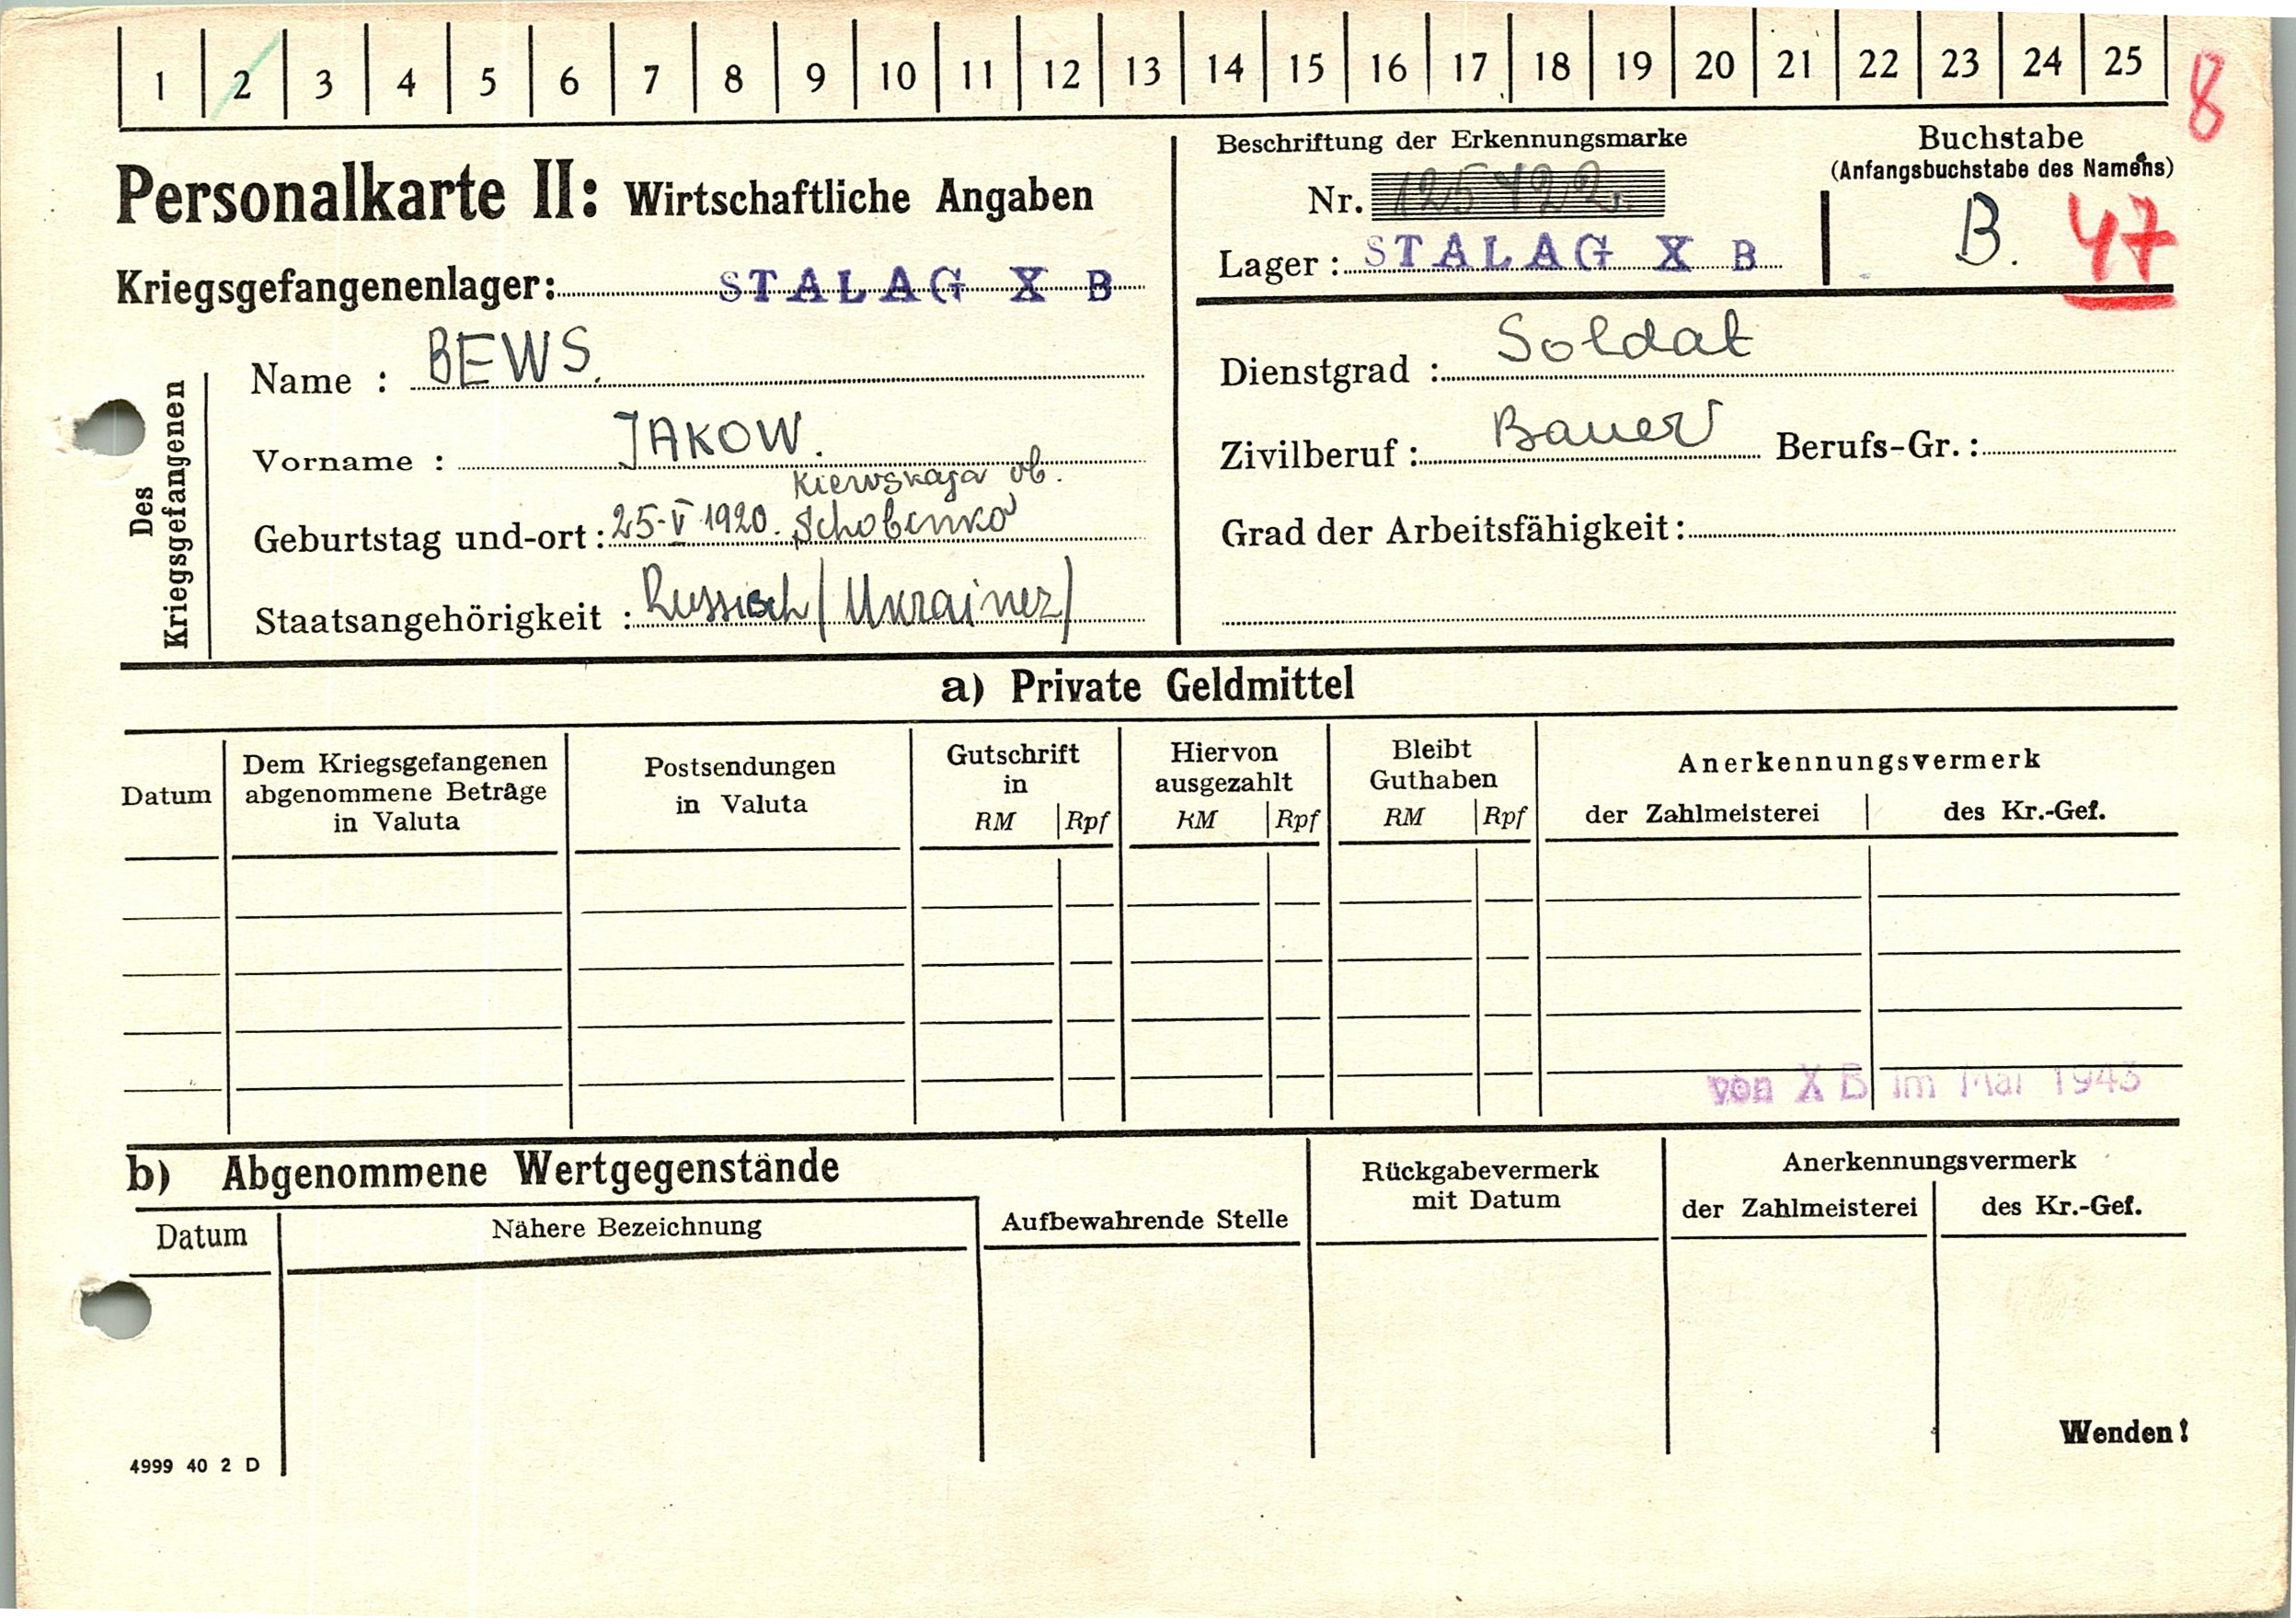 1 2 3 4 5 6 7 8 9 10 11 12 13 14 15 16 17 18 19 20 21 22 23 24 25
8
Personalkarte II: Wirtschaftliche Angaben
Kriegsgefangenenlager: STALAG X B
Beschriftung der Erkennungsmarke
Nr. 125422.
Lager: STALAG X B
Buchstabe
(Anfangsbuchstabe des Namens)
B. 47
Des
Kriegsgefangenen
Name : BEWS.
Vorname : JAKOW.
Kiewskaja ob.
Geburtstag und-ort: 25-V 1920. Schobenko
Staatsangehörigkeit : Russisch/Ukrainer/
Dienstgrad : Soldat
Zivilberuf : Bauer Berufs-Gr.:
Grad der Arbeitsfähigkeit:
a) Private Geldmittel
Datum
Dem Kriegsgefangenen
abgenommene Beträge
in Valuta
Postsendungen
in Valuta
Gutschrift
in
RM Rpf
Hiervon
ausgezahlt
RM Rpf
Bleibt
Guthaben
RM Rpf
Anerkennungsvermerk
der Zahlmeisterei des Kr.-Gef.
von X B im Mai 1943
b) Abgenommene Wertgegenstände
Datum
Nähere Bezeichnung
Aufbewahrende Stelle
Rückgabevermerk
mit Datum
Anerkennungsvermerk
der Zahlmeisterei des Kr.-Gef.
Wenden!
4999 40 2 D